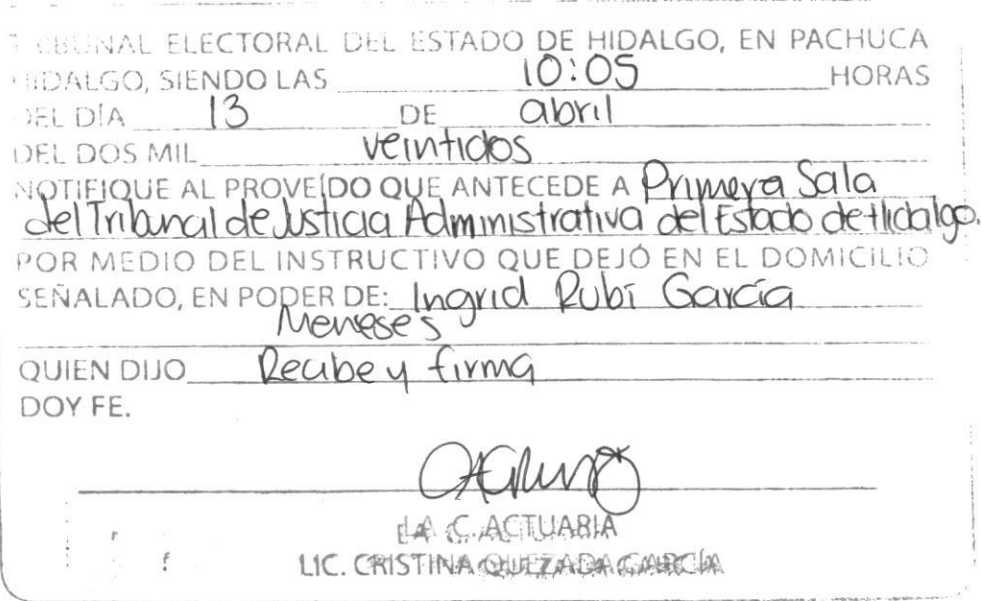 TRIBUNAL ELECTORAL DEL ESTADO DE HIDALGO, EN PACHUCA
HIDALGO, SIENDO LAS 10:05 HORAS
DEL DÍA 13 DE abril
DEL DOS MIL veintidos
NOTIFIQUE AL PROVEÍDO QUE ANTECEDE A Primera Sala
del Tribunal de Justicia Administrativa del Estado de Hidalgo.
POR MEDIO DEL INSTRUCTIVO QUE DEJÓ EN EL DOMICILIO
SEÑALADO, EN PODER DE: Ingrid Rubí García
Meneses
QUIEN DIJO Recibe y firma
DOY FE.
LA C. ACTUARIA
LIC. CRISTINA QUEZADA GARCÍA